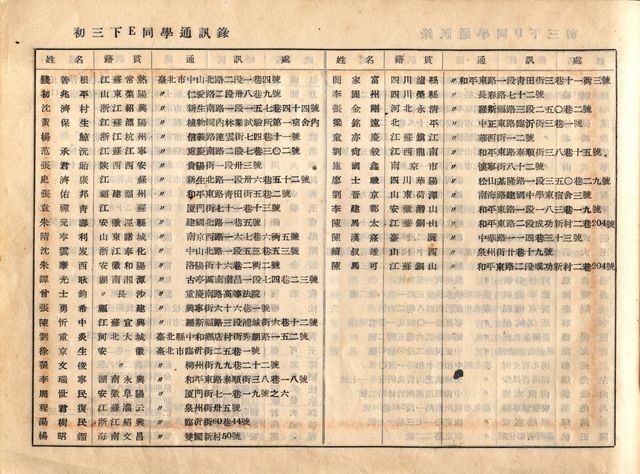 初三下E同學通訊錄
姓名 籍貫 通訊處
錢善根 江蘇常熟 臺北市中山北路二段一巷四號
初兆平 山東萊陽 〃 仁愛路二段卅八巷九號
沈濟村 浙江紹興 〃 新生南路一段一五七巷四十四號
黃保生 江蘇 〃 植物園內林業試驗所第一宿舍內
楊鯨 浙江杭州 〃 信義路連雲街七四巷十一號
范承沅 江蘇 〃 重慶南路二段七巷三〇二號
張君貽 陝西西安 〃 貴陽街一段卅三號
史濟康 江 〃 新生北路二段
張佑邦 福建福州 〃 和平東路青田街五巷二號
袁禪靑 江 〃 廈門街七十一巷十三號
朱元壽 安徽涇縣 〃 建國北路一巷五號
隋享利 山東諸城 〃 南京西路一六七巷六衖五號
沈雲发 浙江奉化 〃 中山北路二段三巷五號
朱慶西 安徽 陽 〃 洛陽街十六巷二衖二號
譚光耿 湖南湘潭 〃 古亭區南南昌一段七四巷二三號
曾士鈴 湖南長沙 〃 重慶南路高等法院
張勇希 福建 〃 興寧街六十六巷一號
陳忻中 江蘇宜興 〃 和平東路三段浦城街六巷十二號
劉重炎 河北大城 臺北縣中和鄉店村街秀朗路一五二號
徐京生 安徽 臺北市臨沂街二五巷一號
翟文俊 〃 柳州街九九巷二十二號
李瑞寧 湖南永興 〃 和平東路泰順街三八巷一八號
周世民 安徽阜陽 〃 廈門街七一巷一九號之六
程君復 江蘇灌云 〃 泉州街卅五號
湯民 浙江紹興 〃 臨沂街60巷44號
楊昭 海南文昌 〃 雙園新村50號
姓名 籍貫 通訊處
閔家富 四川瀘縣 〃 和平東路一段靑田街三巷十一衖三號
李園州 四川 〃 長泰街七十二號
張金剛 河北永清 〃 羅斯福路三段二五〇巷二號
梁銘遠 北平 〃 中正東路臨沂街三巷一號
童亦慶 江蘇鎮江 〃 華西街一二號
劉尙毅 江西龍南 〃 和平東路泰順街三八巷十五號
施國鑫 南京市 〃 懷寧街八十二號
廖士職 四川華陽 〃 松山基隆路一段三五〇巷二九號
劉晋京 山東 〃 南海路建國中學東宿舍
李建 安徽潛山 〃 和平東路一段一八三巷一九號
陳馬太 江蘇銅山 〃 和平東路二段成功新村二巷204號
陳漢熹 臺灣 〃 中華路一四三巷十三號
續叔雄 山西 〃 泉州街廿巷十九號
陳馬可 江蘇銅山 〃 和平東路二段成功新村二巷204號